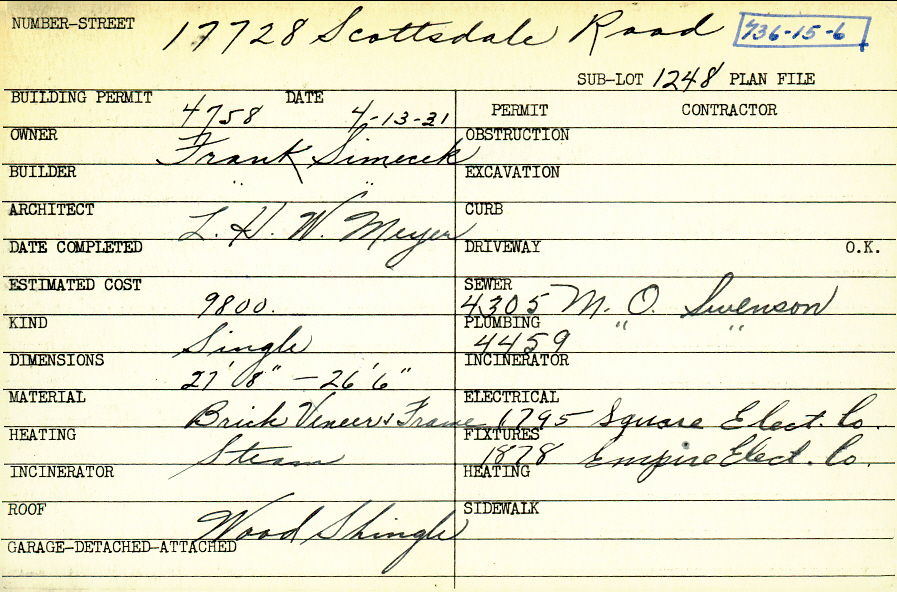 NUMBER-STREET 17728 Scottsdale Road 736-15-6
SUB-LOT 1248 PLAN FILE
BUILDING PERMIT 4758 DATE 4-13-21
PERMIT CONTRACTOR
OWNER Frank Simecek
OBSTRUCTION
BUILDER " "
EXCAVATION
ARCHITECT L. H. W. Meyer
CURB
DATE COMPLETED
DRIVEWAY O.K.
ESTIMATED COST 9800.
SEWER 4305 M. O. Swenson
KIND Single
PLUMBING 4459 " "
DIMENSIONS 27' 8" - 26' 6"
INCINERATOR
MATERIAL Brick Vineer & Frame
ELECTRICAL 1795 Square Elect. Co.
HEATING Steam
FIXTURES 1878 Empire Elect. Co.
INCINERATOR
HEATING
ROOF Wood Shingle
SIDEWALK
GARAGE-DETACHED-ATTACHED